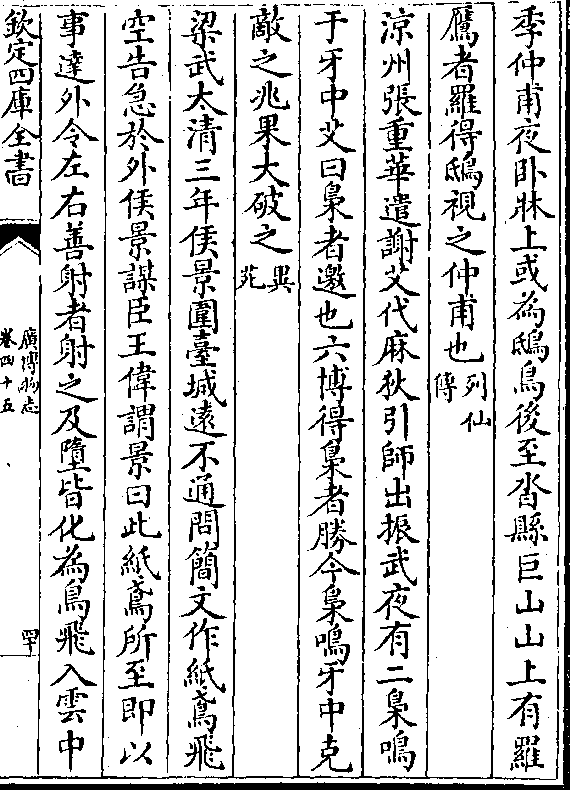 季仲甫夜卧牀上或為鴟鳥後至沓縣巨山山上有羅
鷹者羅得鴟視之仲甫也列仙傳
涼州張重華遣謝艾代麻狄引師出振武夜有二梟鳴
于牙中艾曰梟者邀也六博得梟者勝今梟鳴牙中克
敵之兆果大破之異苑
梁武太清三年侯景圍臺城遠不通問簡文作紙鳶飛
空告急於外侯景謀臣王偉謂景曰此紙鳶所至即以
事達外令左右善射者射之及墮皆化為鳥飛入雲中
欽定四庫全書
廣博物志
卷四十五
罕